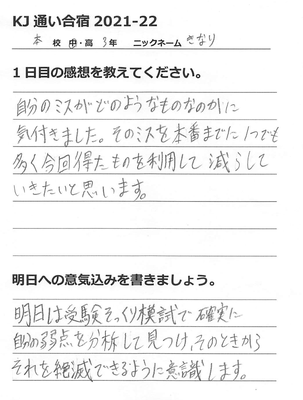 KJ 通い合宿 2021-22
本 校 中・高 3年 ニックネーム きなり
1日目の感想を教えてください。
自分のミスがどのようなものなのかに
気付きました。そのミスを本番までに1つでも
多く今回得たものを利用して減らして
いきたいと思います。
明日への意気込みを書きましょう。
明日は受験そっくり模試で確実に
自分の弱点を分析して見つけ、そのときから
それを絶滅できるように意識します。